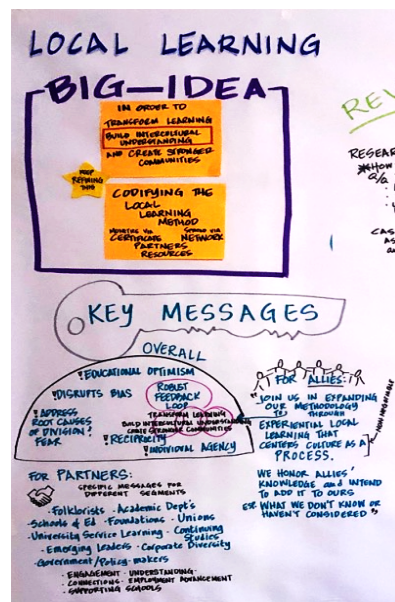 LOCAL LEARNING
BIG-IDEA
IN ORDER TO
TRANSFORM LEARNING
BUILD INTERCULTURAL
UNDERSTANDING
AND CREATE STRONGER
COMMUNITIES
KEEP
REFINING
THIS
CODIFYING THE
LOCAL
LEARNING
METHOD
MONETIZE VIA
CERTIFICATE
SPREAD VIA
NETWORK
PARTNERS
RESOURCES
KEY MESSAGES
OVERALL
! EDUCATIONAL OPTIMISM
! DISRUPTS BIAS
ROBUST
FEEDBACK
LOOP
TRANSFORM LEARNING
BUILD INTERCULTURAL UNDERSTANDING
CREATE STRONGER COMMUNITIES
! ADDRESS
ROOT CAUSES
OF DIVISION /
FEAR
! RECIPROCITY
! INDIVIDUAL AGENCY
FOR ALLIES:
"JOIN US IN EXPANDING
OUR METHODOLOGY
THROUGH
EXPERIENTIAL LOCAL
LEARNING THAT
CENTERS CULTURE AS A
PROCESS.
WE HONOR ALLIES'
KNOWLEDGE and INTEND
TO ADD IT TO OURS
WHAT WE DON'T KNOW OR
HAVEN'T CONSIDERED"
FOR PARTNERS:
SPECIFIC MESSAGES FOR
DIFFERENT SEGMENTS
· Folklorists · Academic Dept's
· Schools & Ed · Foundations · Unions
· University Service Learning · Continuing
Studies
· Emerging Leaders · Corporate Diversity
· Government/Policy-makers
· ENGAGEMENT · UNDERSTANDING ·
· CONNECTIONS · EMPLOYMENT ADVANCEMENT
· SUPPORTING SCHOOLS
RESEAR
Q/a
CAS